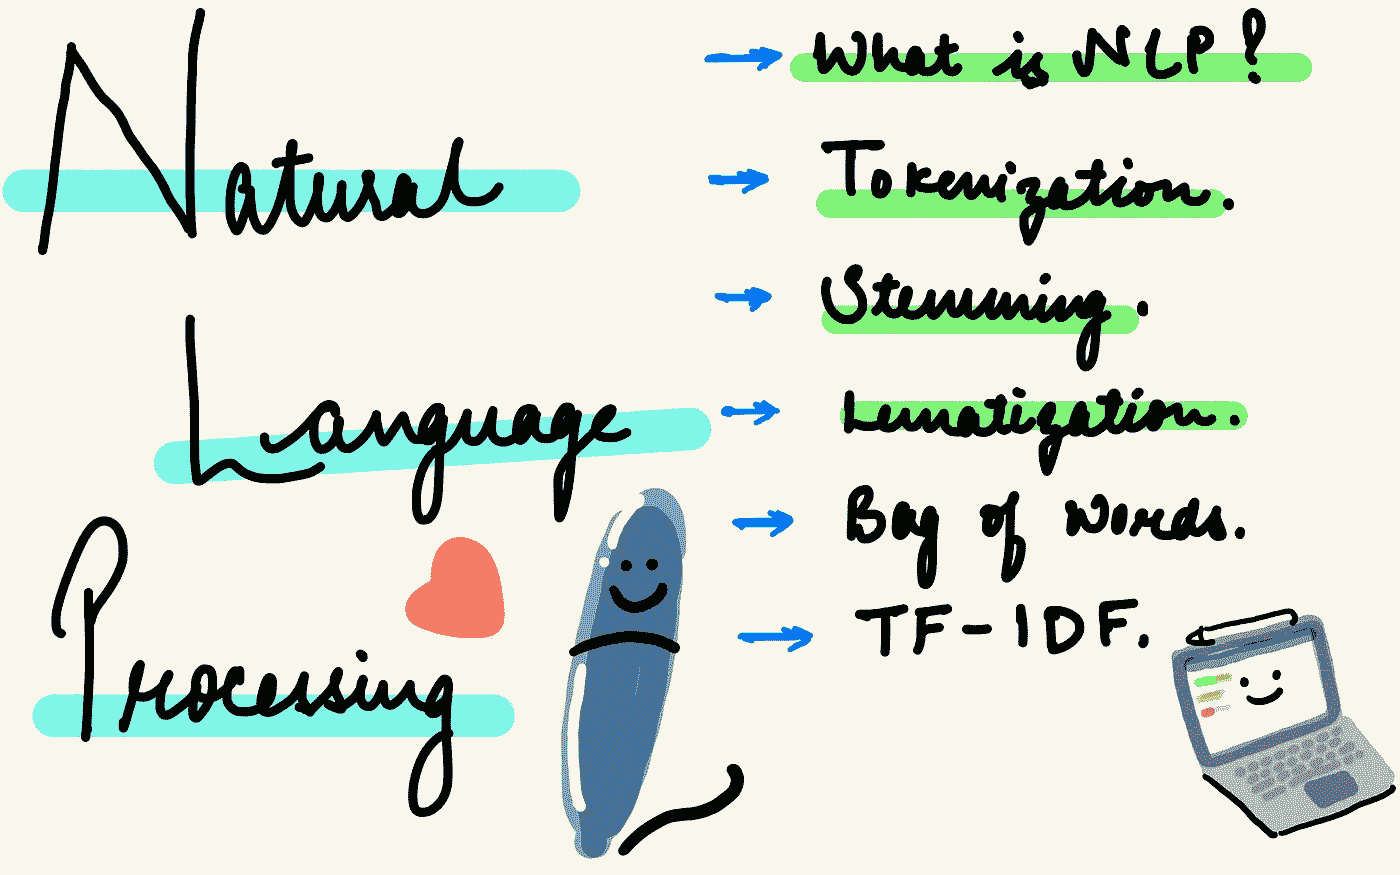 Natural
Language
Processing
What is NLP?
Tokenization.
Stemming.
Lematization.
Bag of words.
TF-IDF.